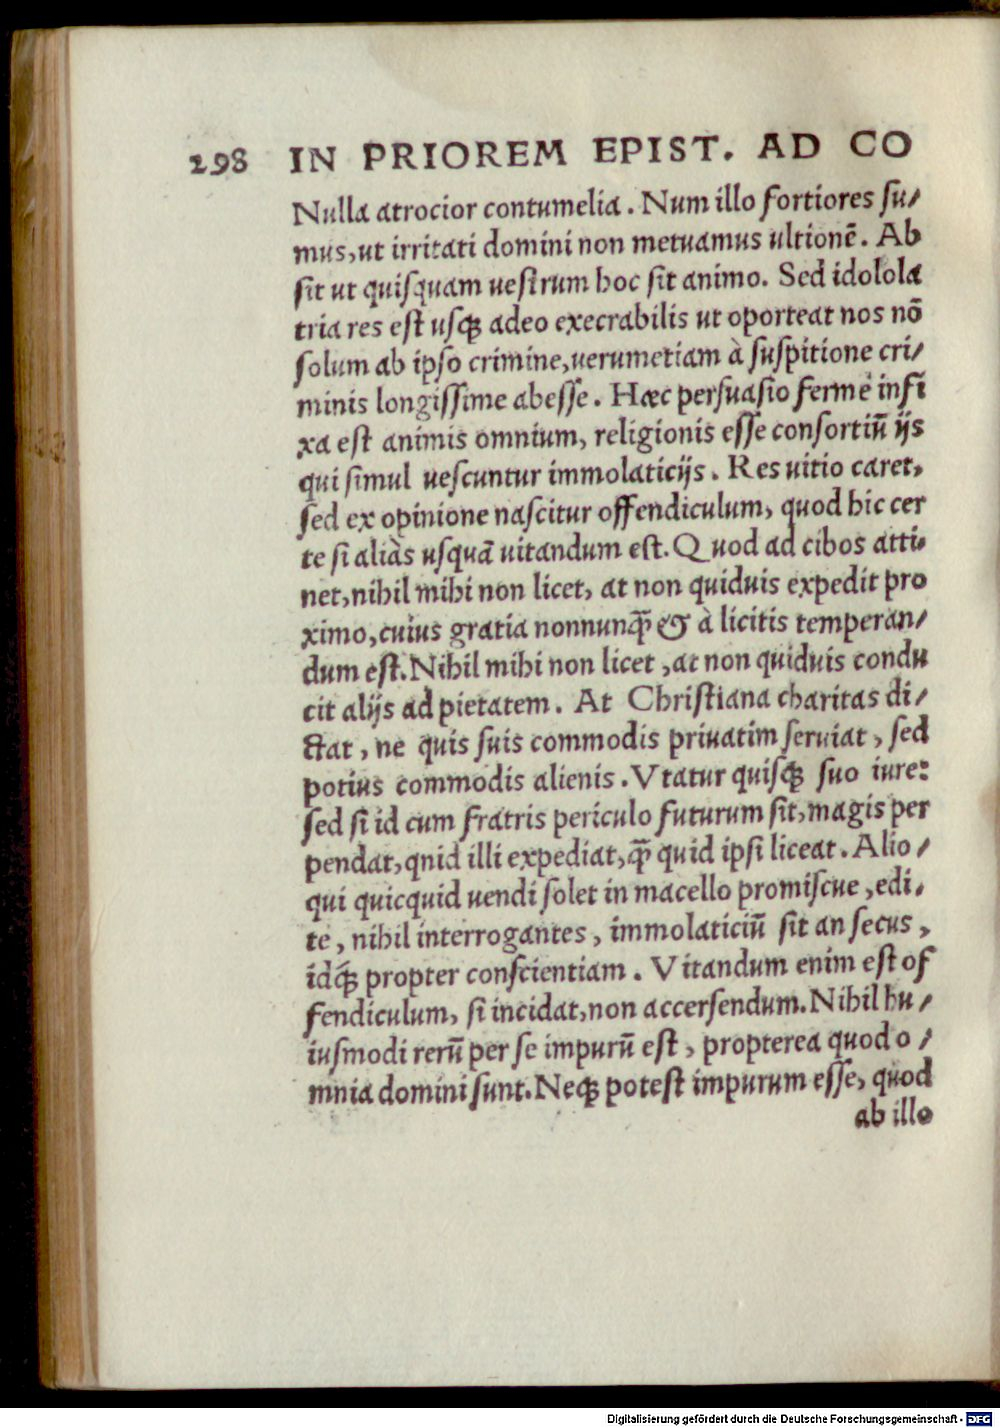 298 IN PRIOREM EPIST. AD CO
Nulla atrocior contumelia. Num illo fortiores su/
mus, ut irritati domini non metuamus ultionē. Ab
sit ut quisquam uestrum hoc sit animo. Sed idolola
tria res est usq́ꝫ adeo execrabilis ut oporteat nos nō
solum ab ipso crimine, uerumetiam à suspitione cri/
minis longissime abesse. Hæc persuasio fermè infi
xa est animis omnium, religionis esse consortiū ijs
qui simul uescuntur immolaticijs. Res uitio caret,
sed ex opinione nascitur offendiculum, quod hic cer
te si aliàs usquā uitandum est. Quod ad cibos atti/
net, nihil mihi non licet, at non quiduis expedit pro
ximo, cuius gratia nonnunq̄ & à licitis temperan/
dum est. Nihil mihi non licet, at non quiduis condu
cit alijs ad pietatem. At Christiana charitas di/
ctat, ne quis suis commodis priuatim seruiat, sed
potius commodis alienis. Vtatur quisq́ꝫ suo iure:
sed si id cum fratris periculo futurum sit, magis per
pendat, qnid illi expediat, q̄ quid ipsi liceat. Alio/
qui quicquid uendi solet in macello promiscue, edi/
te, nihil interrogantes, immolaticiū sit an secus,
idq́ꝫ propter conscientiam. Vitandum enim est of
fendiculum, si incidat, non accersendum. Nihil hu/
iusmodi rerū per se impurū est, propterea quod o/
mnia domini sunt. Neq́ꝫ potest impurum esse, quod
ab illo
Digitalisierung gefördert durch die Deutsche Forschungsgemeinschaft - DFG